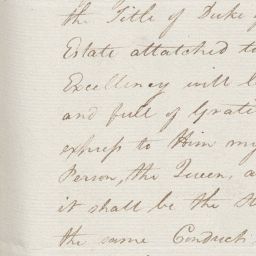 the Title of Duke
Estate attatched to
Excellency will
and full of Grati
express to Him my
Person, the Queen, a
it shall be the
the same Conduct